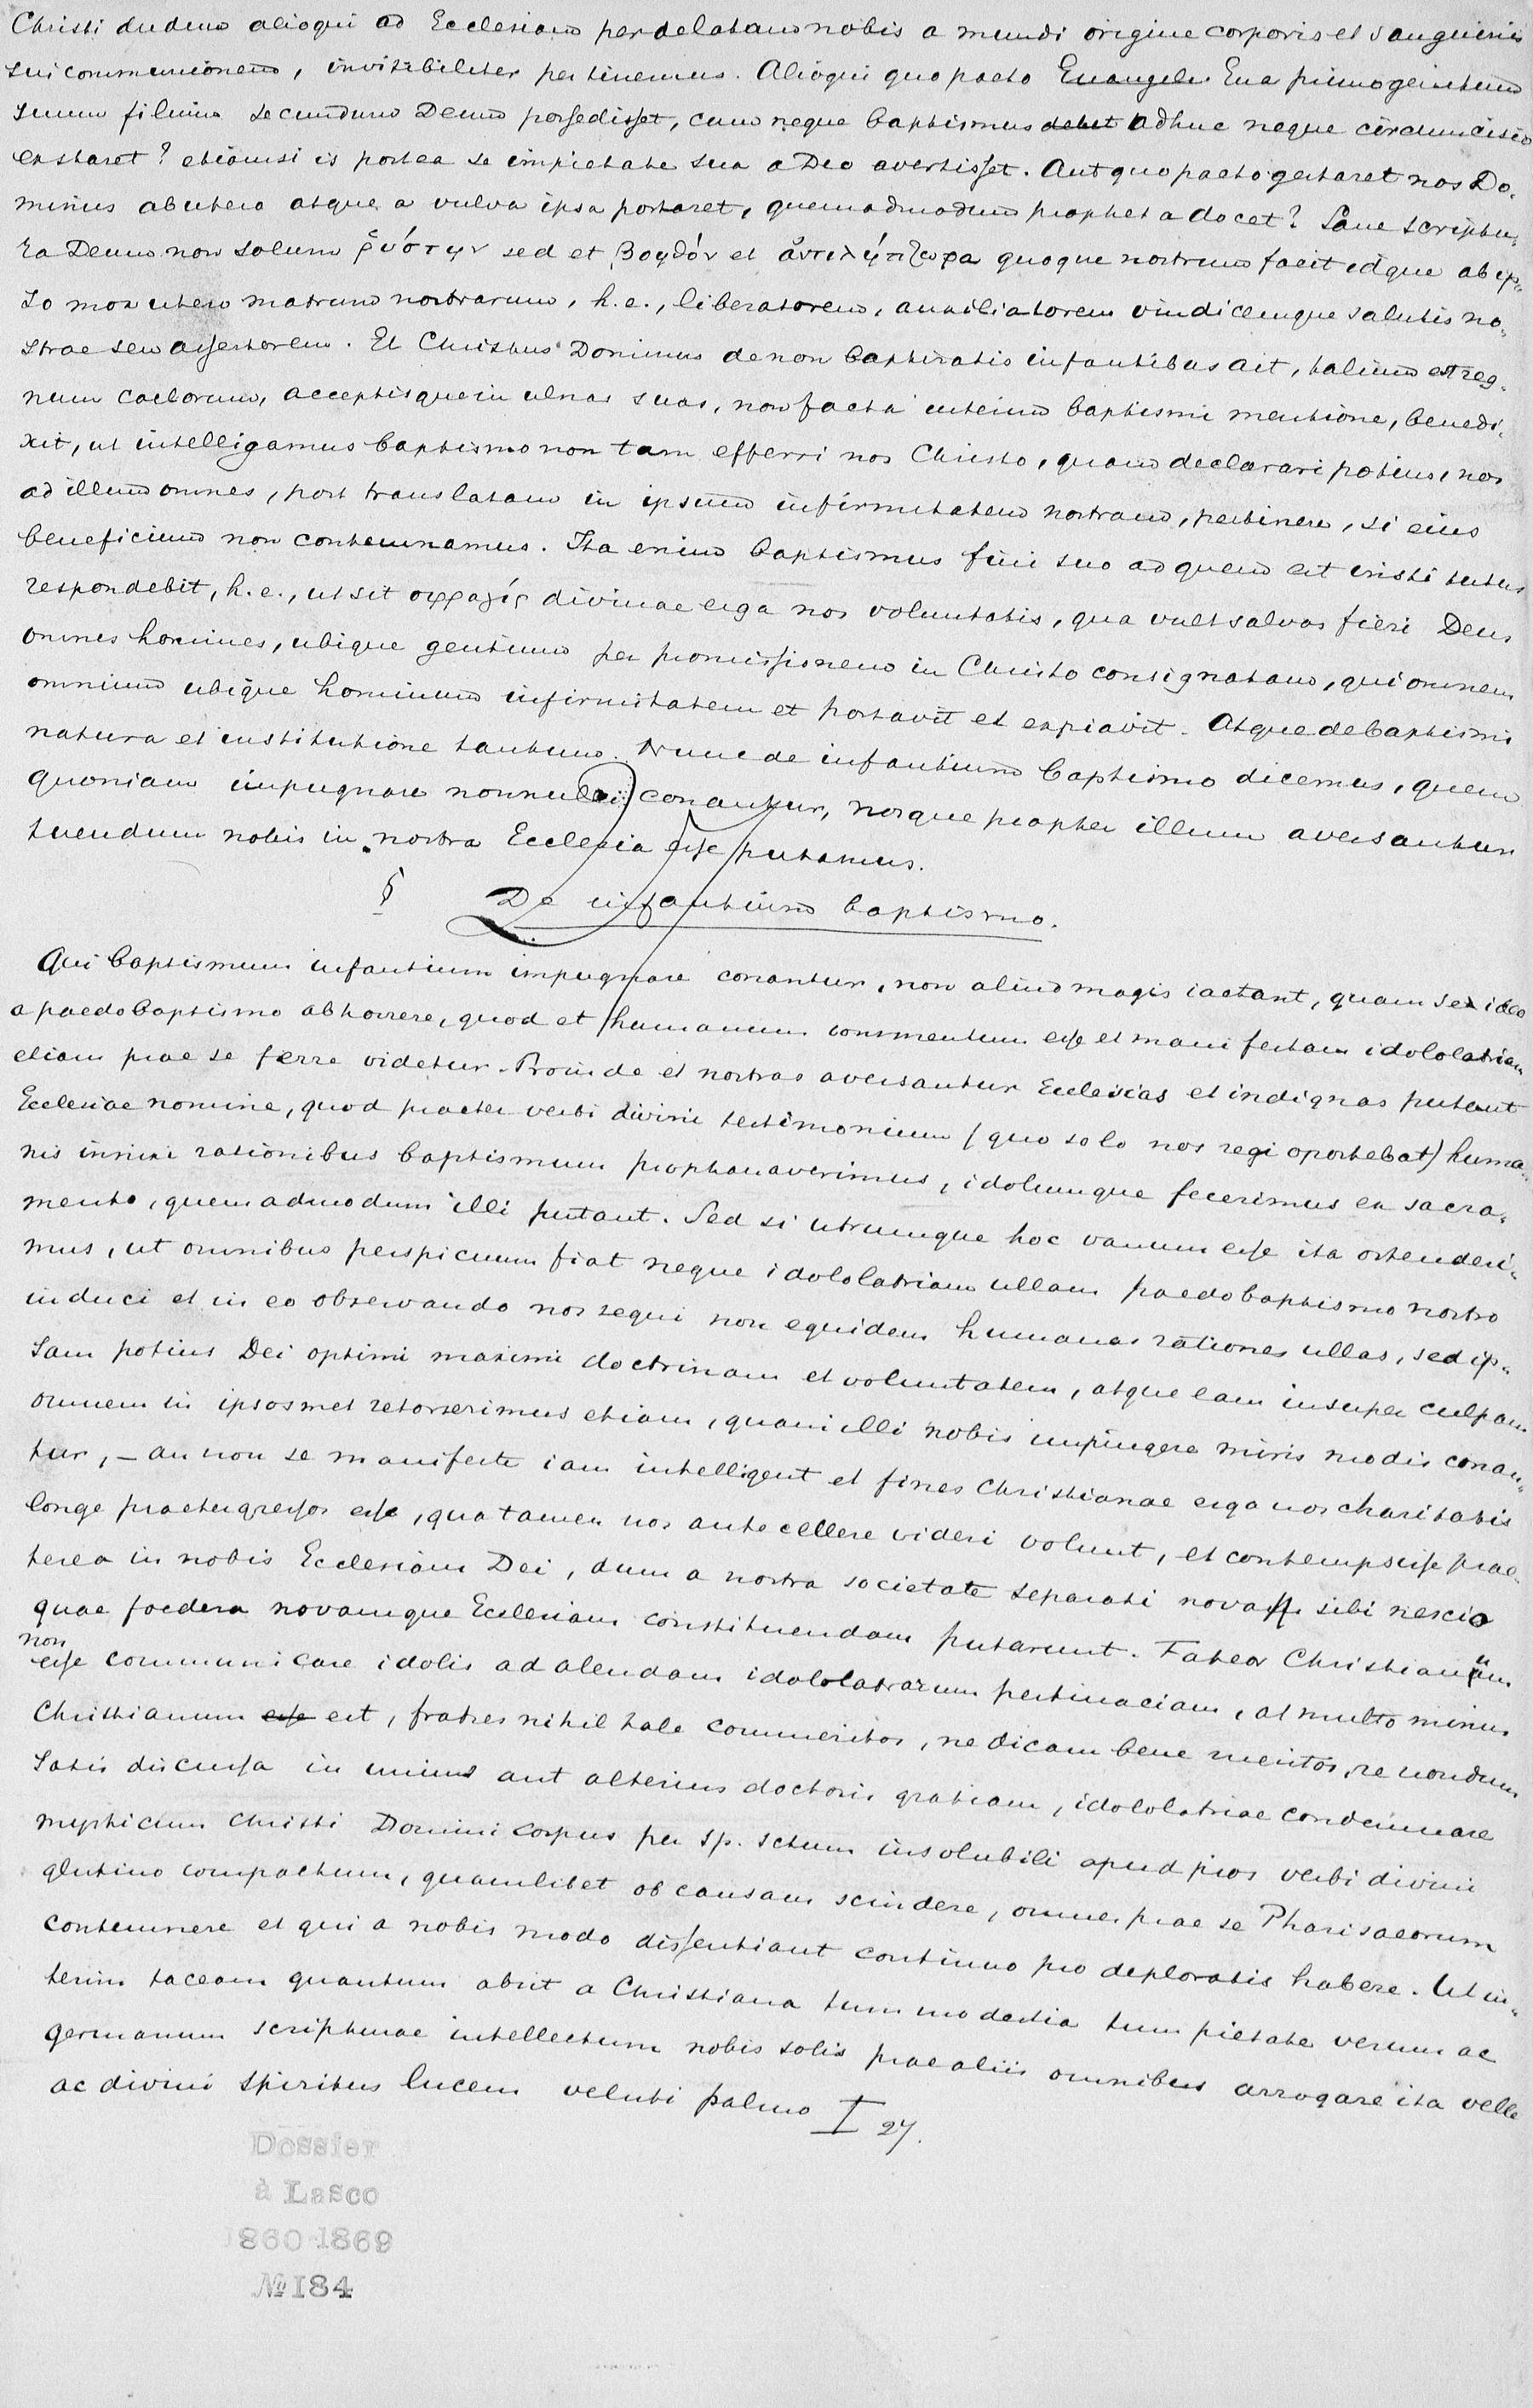 Christi dudum alioqui ad Ecclesiam per delatam nobis a mundi origine corporis et sanguinis
sui communionem, invisibiliter pertinemus. Alioqui quo pacto Euangele Eua primogenitum
suum filium secundum Deum possedisset, cum neque baptismus debet adhuc neque circumcisio
exstaret? etiamsi is postea se impietate sua a Deo avertisset. Aut quo pacto gestaret nos Do-
minus ab utero atque a vulva ipsa portaret, quemadmodum propheta docet? Sane scriptu-
ra Deum non solum ῥύστην sed et βοηθόν et ἀντιλήπτωρα quoque nostrum facit idque ab ip-
so mox utero matrum nostrarum, h. e., liberatorem, auxiliatorem vindicemque salutis no-
strae seu assertorem. Et Christus Dominus de non baptizatis infantibus ait, talium est reg-
num caelorum, acceptisque in ulnas suas, non facta interim baptismi mentione, benedi-
xit, ut intelligamus baptismo non tam efferri nos Christo, quam declarari potius, nos
ad illum omnes, post translatam in ipsum infirmitatem nostram, pertinere, si eius
beneficium non contemnamus. Ita enim baptismus fini suo ad quem est institutus
respondebit, h. e., ut sit σφραγίς divinae erga nos voluntatis, qua vult salvos fieri Deus
omnes homines, ubique gentium per promissionem in Christo consignatam, qui omnem
omnium ubique hominum infirmitatem et portavit et expiavit. Atque de baptismi
natura et institutione tantum. Nunc de infantium baptismo dicemus, quem
quoniam impugnare nonnulli conantur, nosque propter illum aversantur
tuendum nobis in nostra Ecclesia esse putamus.
§ De infantium baptismo.
Qui baptismum infantium impugnare conantur, non aliud magis iactant, quam se ideo
a paedobaptismo abhorrere, quod et humanum commentum esse et manifestam idololatriam
etiam prae se ferre videtur. Proinde et nostras aversantur Ecclesias et indignas putant
Ecclesiae nomine, quod praeter verbi divini testimonium (quo solo nos regi oportebat) huma-
nis innixi rationibus baptismum prophanaverimus, idolumque fecerimus ex sacra-
mento, quemadmodum illi putant. Sed si utrumque hoc vanum esse ita ostenderi-
mus, ut omnibus perspicuum fiat neque idololatriam ullam paedobaptismo nostro
induci et in eo observando nos sequi non equidem humanas rationes ullas, sed ip-
sam potius Dei optimi maximi doctrinam et voluntatem, atque eam insuper culpam
omnem in ipsosmet retorserimus etiam, quam illi nobis impingere miris modis conan-
tur, – an non se manifeste iam intelligent et fines Christianae erga nos charitatis
longe praetergressos esse, qua tamen nos antecellere videri volunt, et contempsisse prae-
terea in nobis Ecclesiam Dei, dum a nostra societate separati nova sibi nescio
quae foedera novamque Ecclesiam constituendam putarunt. Fateor Christianum
non
esse communicare idolis ad alendam idololatrarum pertinaciam, at multo minus
Christianum esse est, fratres nihil tale commeritos, ne dicam bene meritos, re nondum
satis discussa in unius aut alterius doctoris gratiam, idololatriae condemnare
mysticum Christi Domini corpus per sp. sctum insolubili apud pios verbi divini
glutino compactum, quamlibet ob causam scindere, omnes prae se Pharisaeorum
contemnere et qui a nobis modo dissentiant continuo pro deploratis habere. Ut in-
terim taceam quantum absit a Christiana tum modestia tum pietate verum ac
germanum scripturae intellectum nobis solis prae aliis omnibus arrogare ita velle
ac divini Spiritus lucem veluti palmo I 27.
Dossier
à Lasco
1860-1869
№ 184